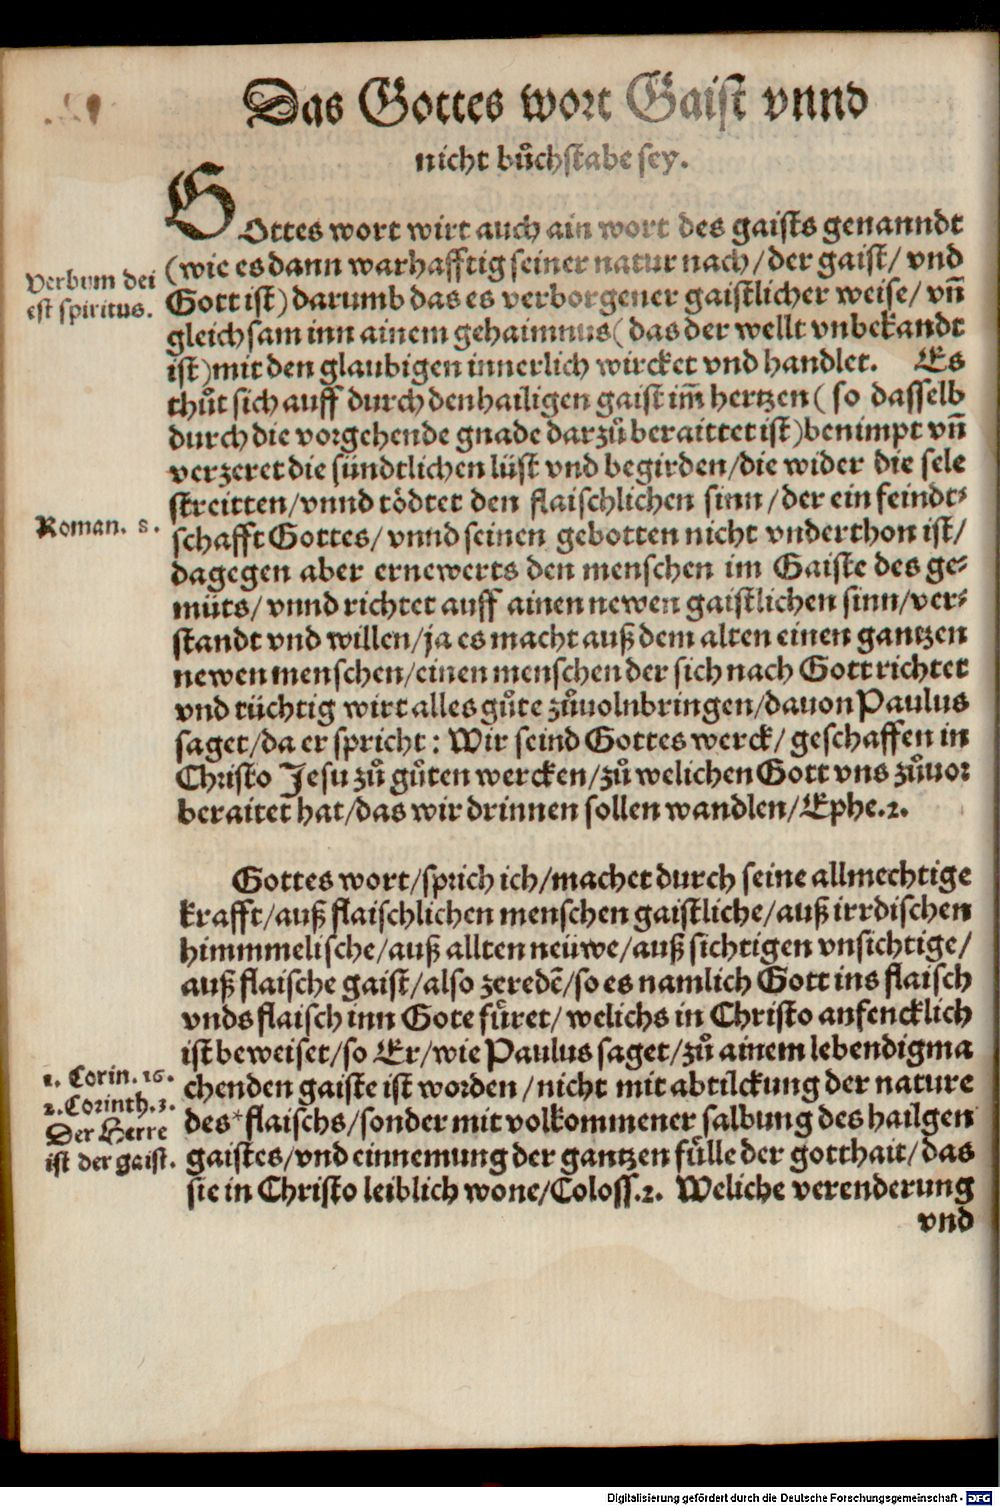 Das Gottes wort Gaist vnnd
nicht bůchstabe sey.
GOttes wort wirt auch ain wort des gaists genanndt
(wie es dann warhafftig seiner natur nach/der gaist/ vnd
Verbum dei
est spiritus.
Gott ist) darumb das es verborgener gaistlicher weise/ vñ
gleichsam inn ainem gehaimnus( das der wellt vnbekandt
ist)mit den glaubigen innerlich wircket vnd handlet. Es
thůt sich auff durch den hailigen gaist im̃ hertzen ( so dasselb
durch die vorgehende gnade darzů beraittet ist)benimpt vñ
verzeret die sündtlichen lüst vnd begirden/die wider die sele
streitten/vnnd tödtet den flaischlichen sinn/der ein feindt-
Roman. 8.
schafft Gottes/ vnnd seinen gebotten nicht vnderthon ist/
dagegen aber ernewerts den menschen im Gaiste des ge-
müts/ vnnd richtet auff ainen newen gaistlichen sinn/ver-
standt vnd willen/ja es macht auß dem alten einen gantzen
newen menschen/einen menschen der sich nach Gott richtet
vnd tüchtig wirt alles gůte zůuolnbringen/dauon Paulus
saget/da er spricht: Wir seind Gottes werck/ geschaffen in
Christo Jesu zů gůten wercken/zů welichen Gott vns zůuor
beraitet hat/das wir drinnen sollen wandlen/Ephe.2.
Gottes wort/sprich ich/machet durch seine allmechtige
krafft/auß flaischlichen menschen gaistliche/auß irrdischen
himmmelische/auß allten neüwe/auß sichtigen vnsichtige/
auß flaische gaist/also zeredẽ/so es namlich Gott ins flaisch
vnds flaisch inn Gote fůret/welichs in Christo anfencklich
ist beweiset/so Er/wie Paulus saget/zů ainem lebendigma
1. Corin. 15.
2. Corinth. 3.
Der Herre
ist der gaist.
chenden gaiste ist worden/nicht mit abtilckung der nature
des*flaischs/sonder mit volkommener salbung des hailgen
gaistes/vnd einnemung der gantzen fülle der gotthait/das
sie in Christo leiblich wone/Coloss.2. Weliche verenderung
vnd
Digitalisierung gefördert durch die Deutsche Forschungsgemeinschaft - DFG